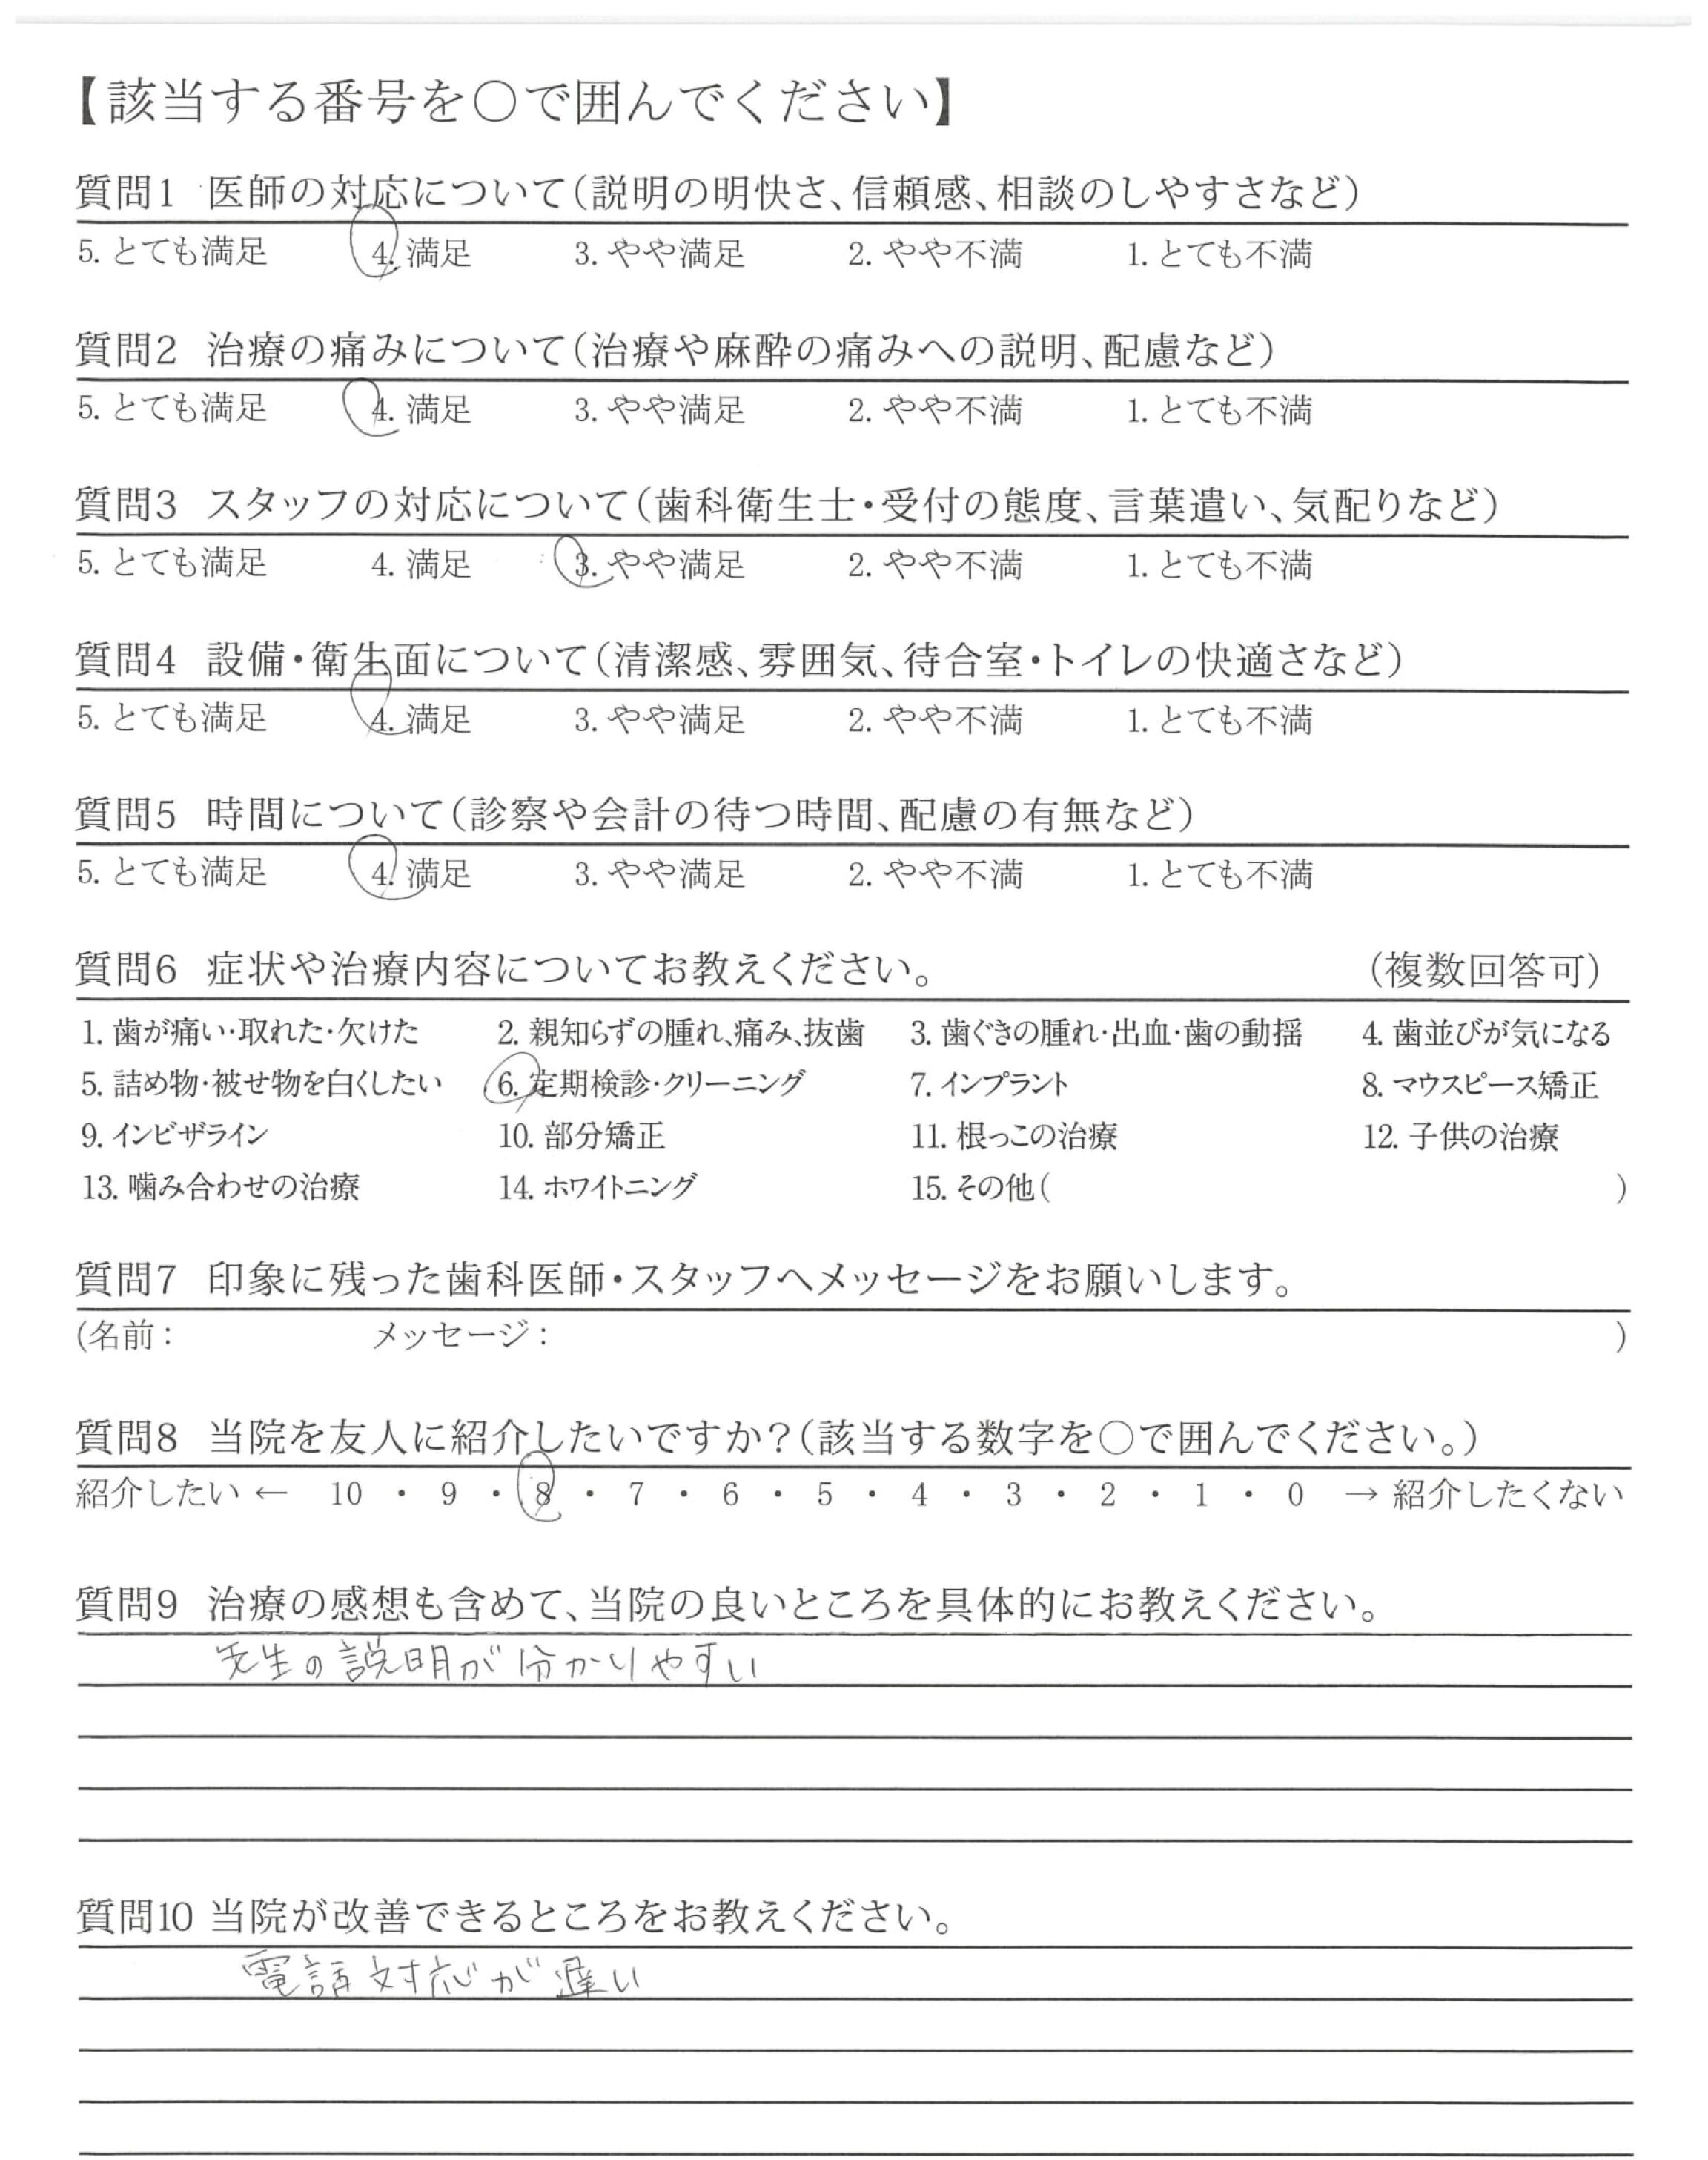 【該当する番号を〇で囲んでください】
質問1 医師の対応について(説明の明快さ、信頼感、相談のしやすさなど)
5. とても満足 4. 満足 3. やや満足 2. やや不満 1. とても不満
質問2 治療の痛みについて(治療や麻酔の痛みへの説明、配慮など)
5. とても満足 4. 満足 3. やや満足 2. やや不満 1. とても不満
質問3 スタッフの対応について(歯科衛生士・受付の態度、言葉遣い、気配りなど)
5. とても満足 4. 満足 3. やや満足 2. やや不満 1. とても不満
質問4 設備・衛生面について(清潔感、雰囲気、待合室・トイレの快適さなど)
5. とても満足 4. 満足 3. やや満足 2. やや不満 1. とても不満
質問5 時間について(診察や会計の待つ時間、配慮の有無など)
5. とても満足 4. 満足 3. やや満足 2. やや不満 1. とても不満
質問6 症状や治療内容についてお教えください。 (複数回答可)
1. 歯が痛い・取れた・欠けた 2. 親知らずの腫れ、痛み、抜歯 3. 歯ぐきの腫れ・出血・歯の動揺 4. 歯並びが気になる
5. 詰め物・被せ物を白くしたい 6. 定期検診・クリーニング 7. インプラント 8. マウスピース矯正
9. インビザライン 10. 部分矯正 11. 根っこの治療 12. 子供の治療
13. 噛み合わせの治療 14. ホワイトニング 15. その他( )
質問7 印象に残った歯科医師・スタッフへメッセージをお願いします。
(名前: メッセージ: )
質問8 当院を友人に紹介したいですか?(該当する数字を〇で囲んでください。)
紹介したい ← 10 ・ 9 ・ 8 ・ 7 ・ 6 ・ 5 ・ 4 ・ 3 ・ 2 ・ 1 ・ 0 → 紹介したくない
質問9 治療の感想も含めて、当院の良いところを具体的にお教えください。
先生の説明が分かりやすい
質問10 当院が改善できるところをお教えください。
電話対応が遅い